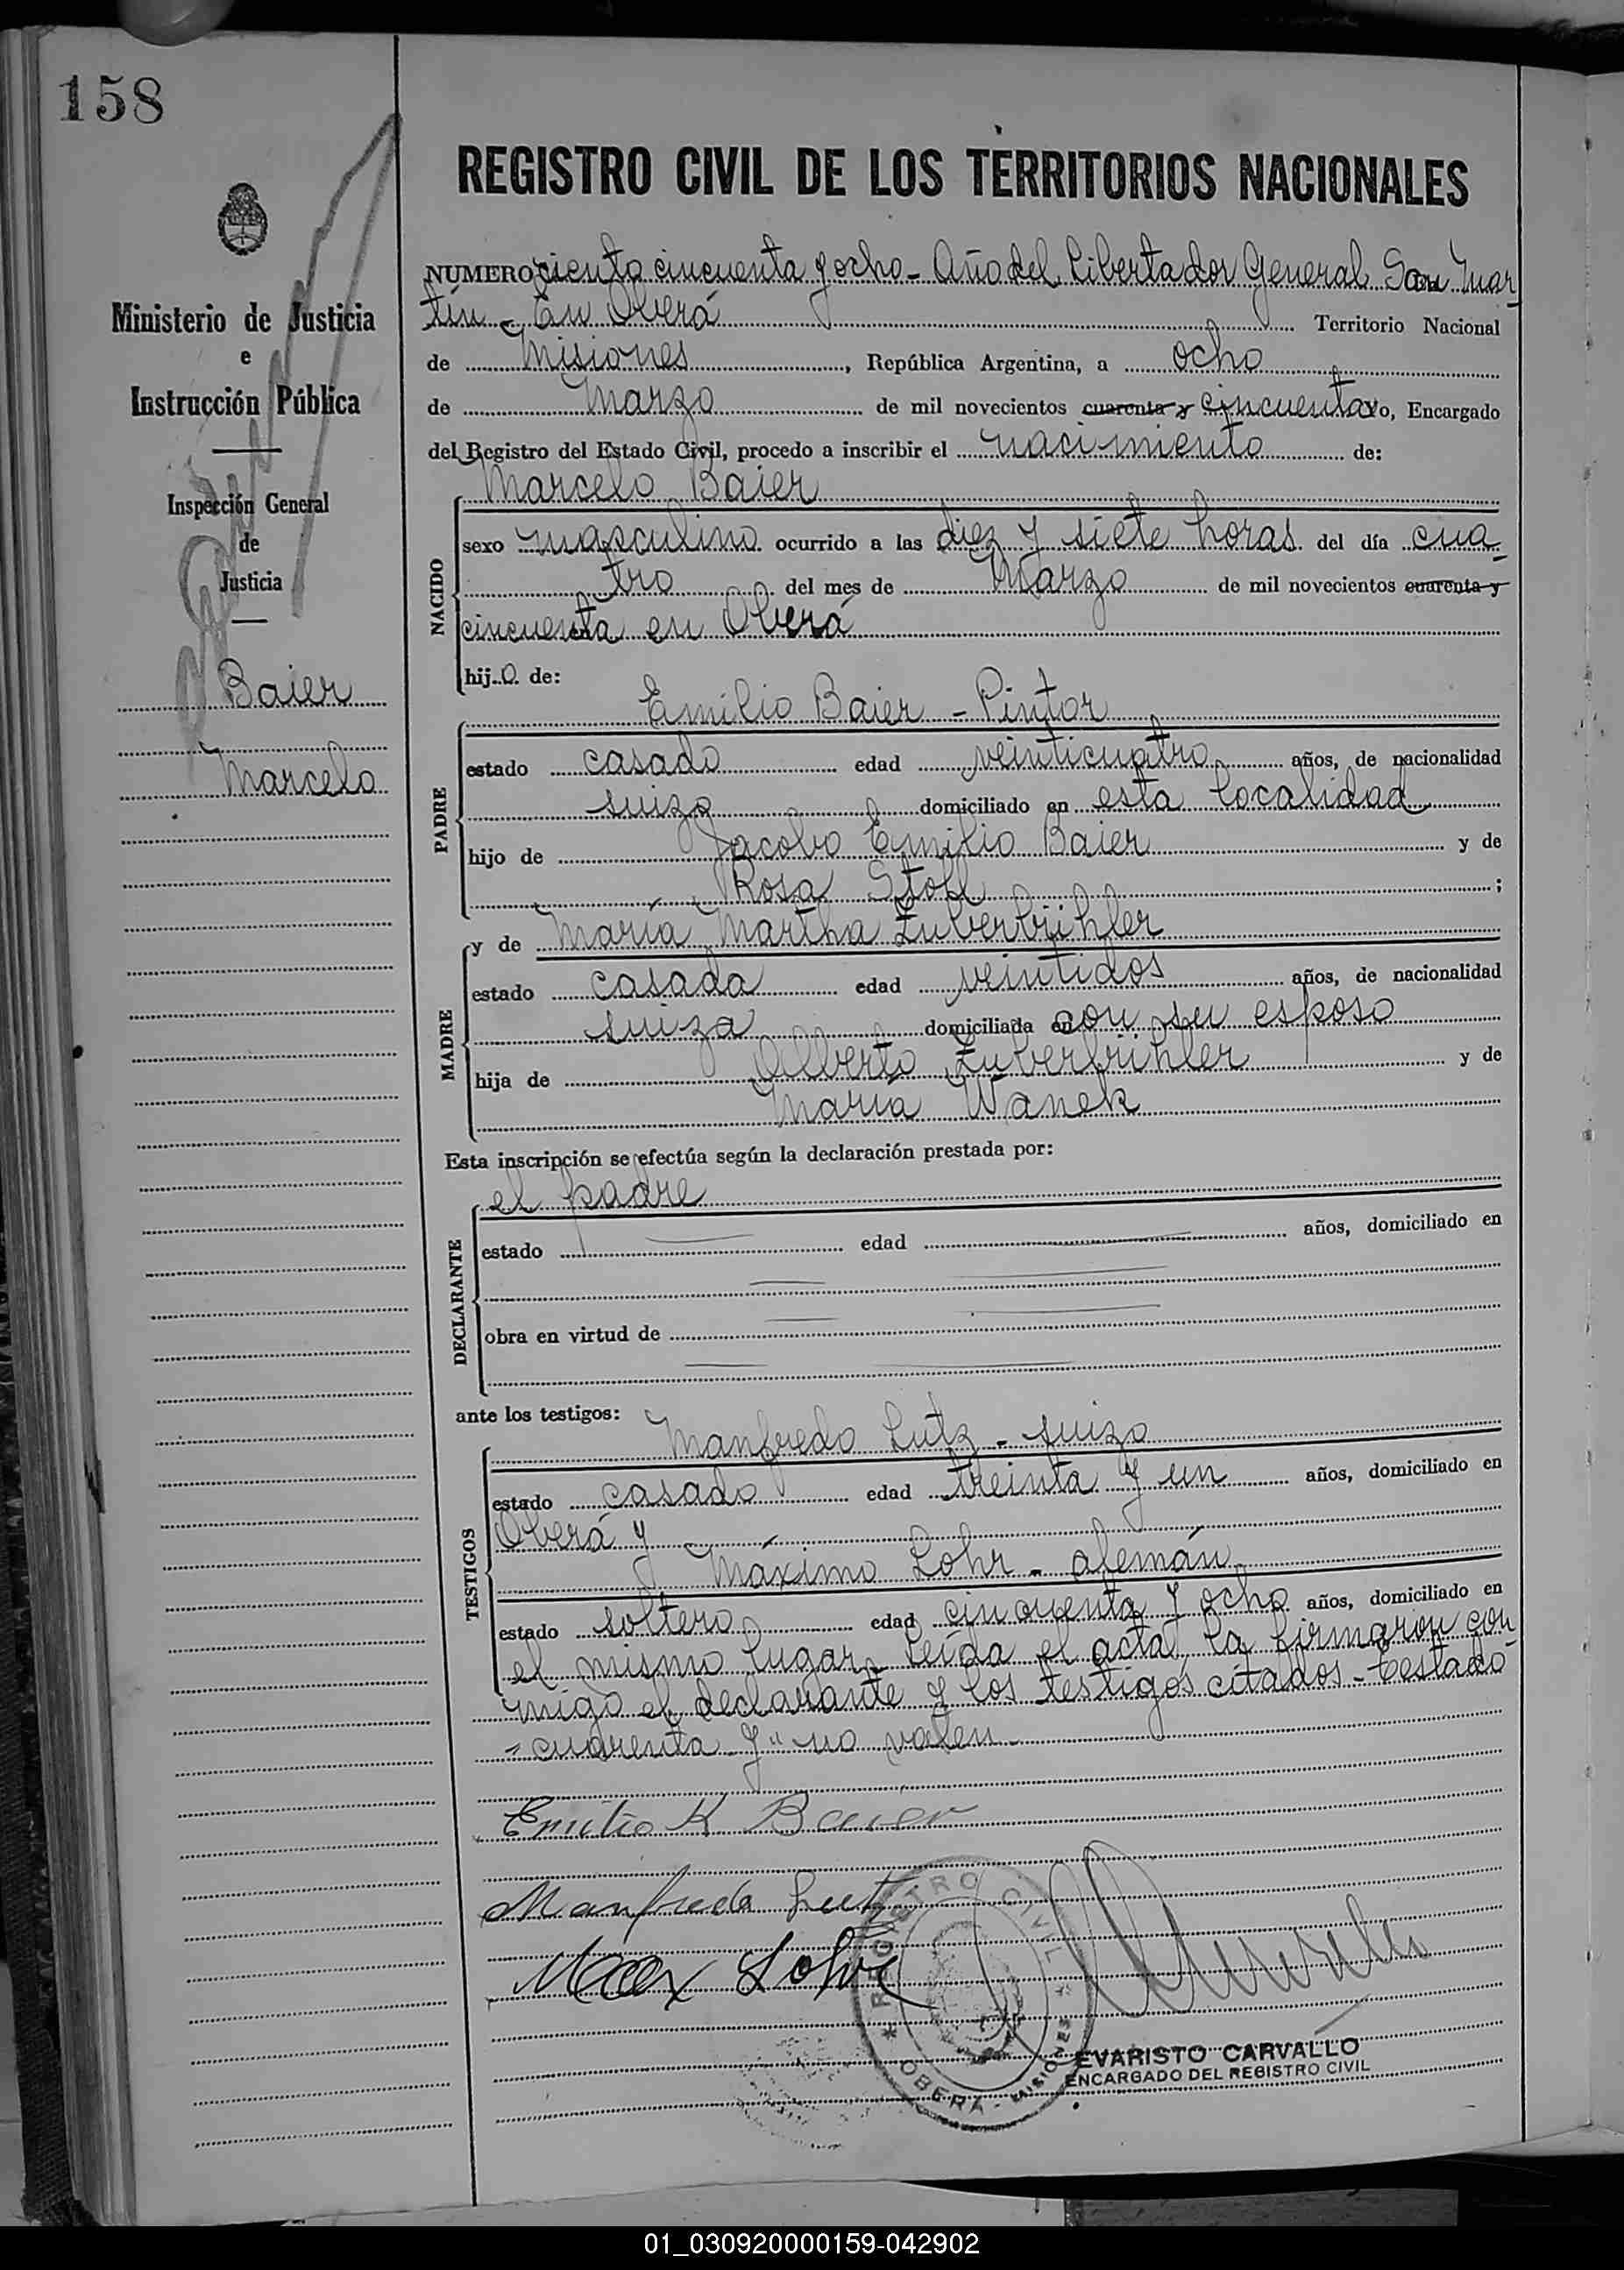 158
REGISTRO CIVIL DE LOS TERRITORIOS NACIONALES
Ministerio de Justicia
e
Instrucción Pública
Inspección General
de
Justicia
Baier
Marcelo
NUMERO ciento cincuenta y ocho - Año del Libertador General San Mar-
tín - En Oberá Territorio Nacional
de Misiones, República Argentina, a ocho
de Marzo de mil novecientos cuarenta y cincuenta yo, Encargado
del Registro del Estado Civil, procedo a inscribir el nacimiento de:
Marcelo Baier
NACIDO
sexo masculino ocurrido a las diez y siete horas del día cua-
tro del mes de Marzo de mil novecientos cuarenta y
cincuenta en Oberá
hijo de:
PADRE
Emilio Baier - Pintor
estado casado edad veinticuatro años, de nacionalidad
suizo domiciliado en esta localidad
hijo de Jacobo Emilio Baier y de
Rosa Stoll ;
MADRE
y de María Martha Zuberbühler
estado casada edad veintidos años, de nacionalidad
suiza domiciliada en con su esposo
hija de Alberto Zuberbühler y de
María Wanek
Esta inscripción se efectúa según la declaración prestada por:
DECLARANTE
el padre
estado edad años, domiciliado en
obra en virtud de
ante los testigos:
TESTIGOS
Manfredo Lutz - suizo
estado casado edad treinta y un años, domiciliado en
Oberá y
Máximo Lohr - alemán
estado soltero edad cincuenta y ocho años, domiciliado en
el mismo lugar - Leída el acta, la firmaron con
migo el declarante y los testigos citados - Testado
"cuarenta y" no valen -
Emilio K Baier
Manfredo Lutz
Max Lohr
REGISTRO CIVIL
OBERÁ - MISIONES
EVARISTO CARVALLO
ENCARGADO DEL REGISTRO CIVIL
01_030920000159-042902